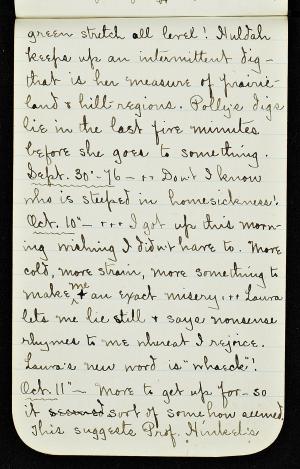 green stretch all level! Huldah
keeps up an intermittent dig -
that is her measure of prairie-
land & hill regions. Polly's digs
lie in the last five minutes
before she goes to something.
Sept. 30"-76 - ++ Don't I know
who is steeped in homesickness!
Oct. 10" - +++ I got up this morn-
ing wishing I didn't have to. More
cold, more strain, more something to
make me & an exact misery. +++ Laura
lets me lie still & says nonsense
rhymes to me whereat I rejoice.
Laura's new word is "whaeck"!
Oct. 11" - More to get up for - so
it seemed sort of somehow seemed.
This suggests Prof. Hinkel's